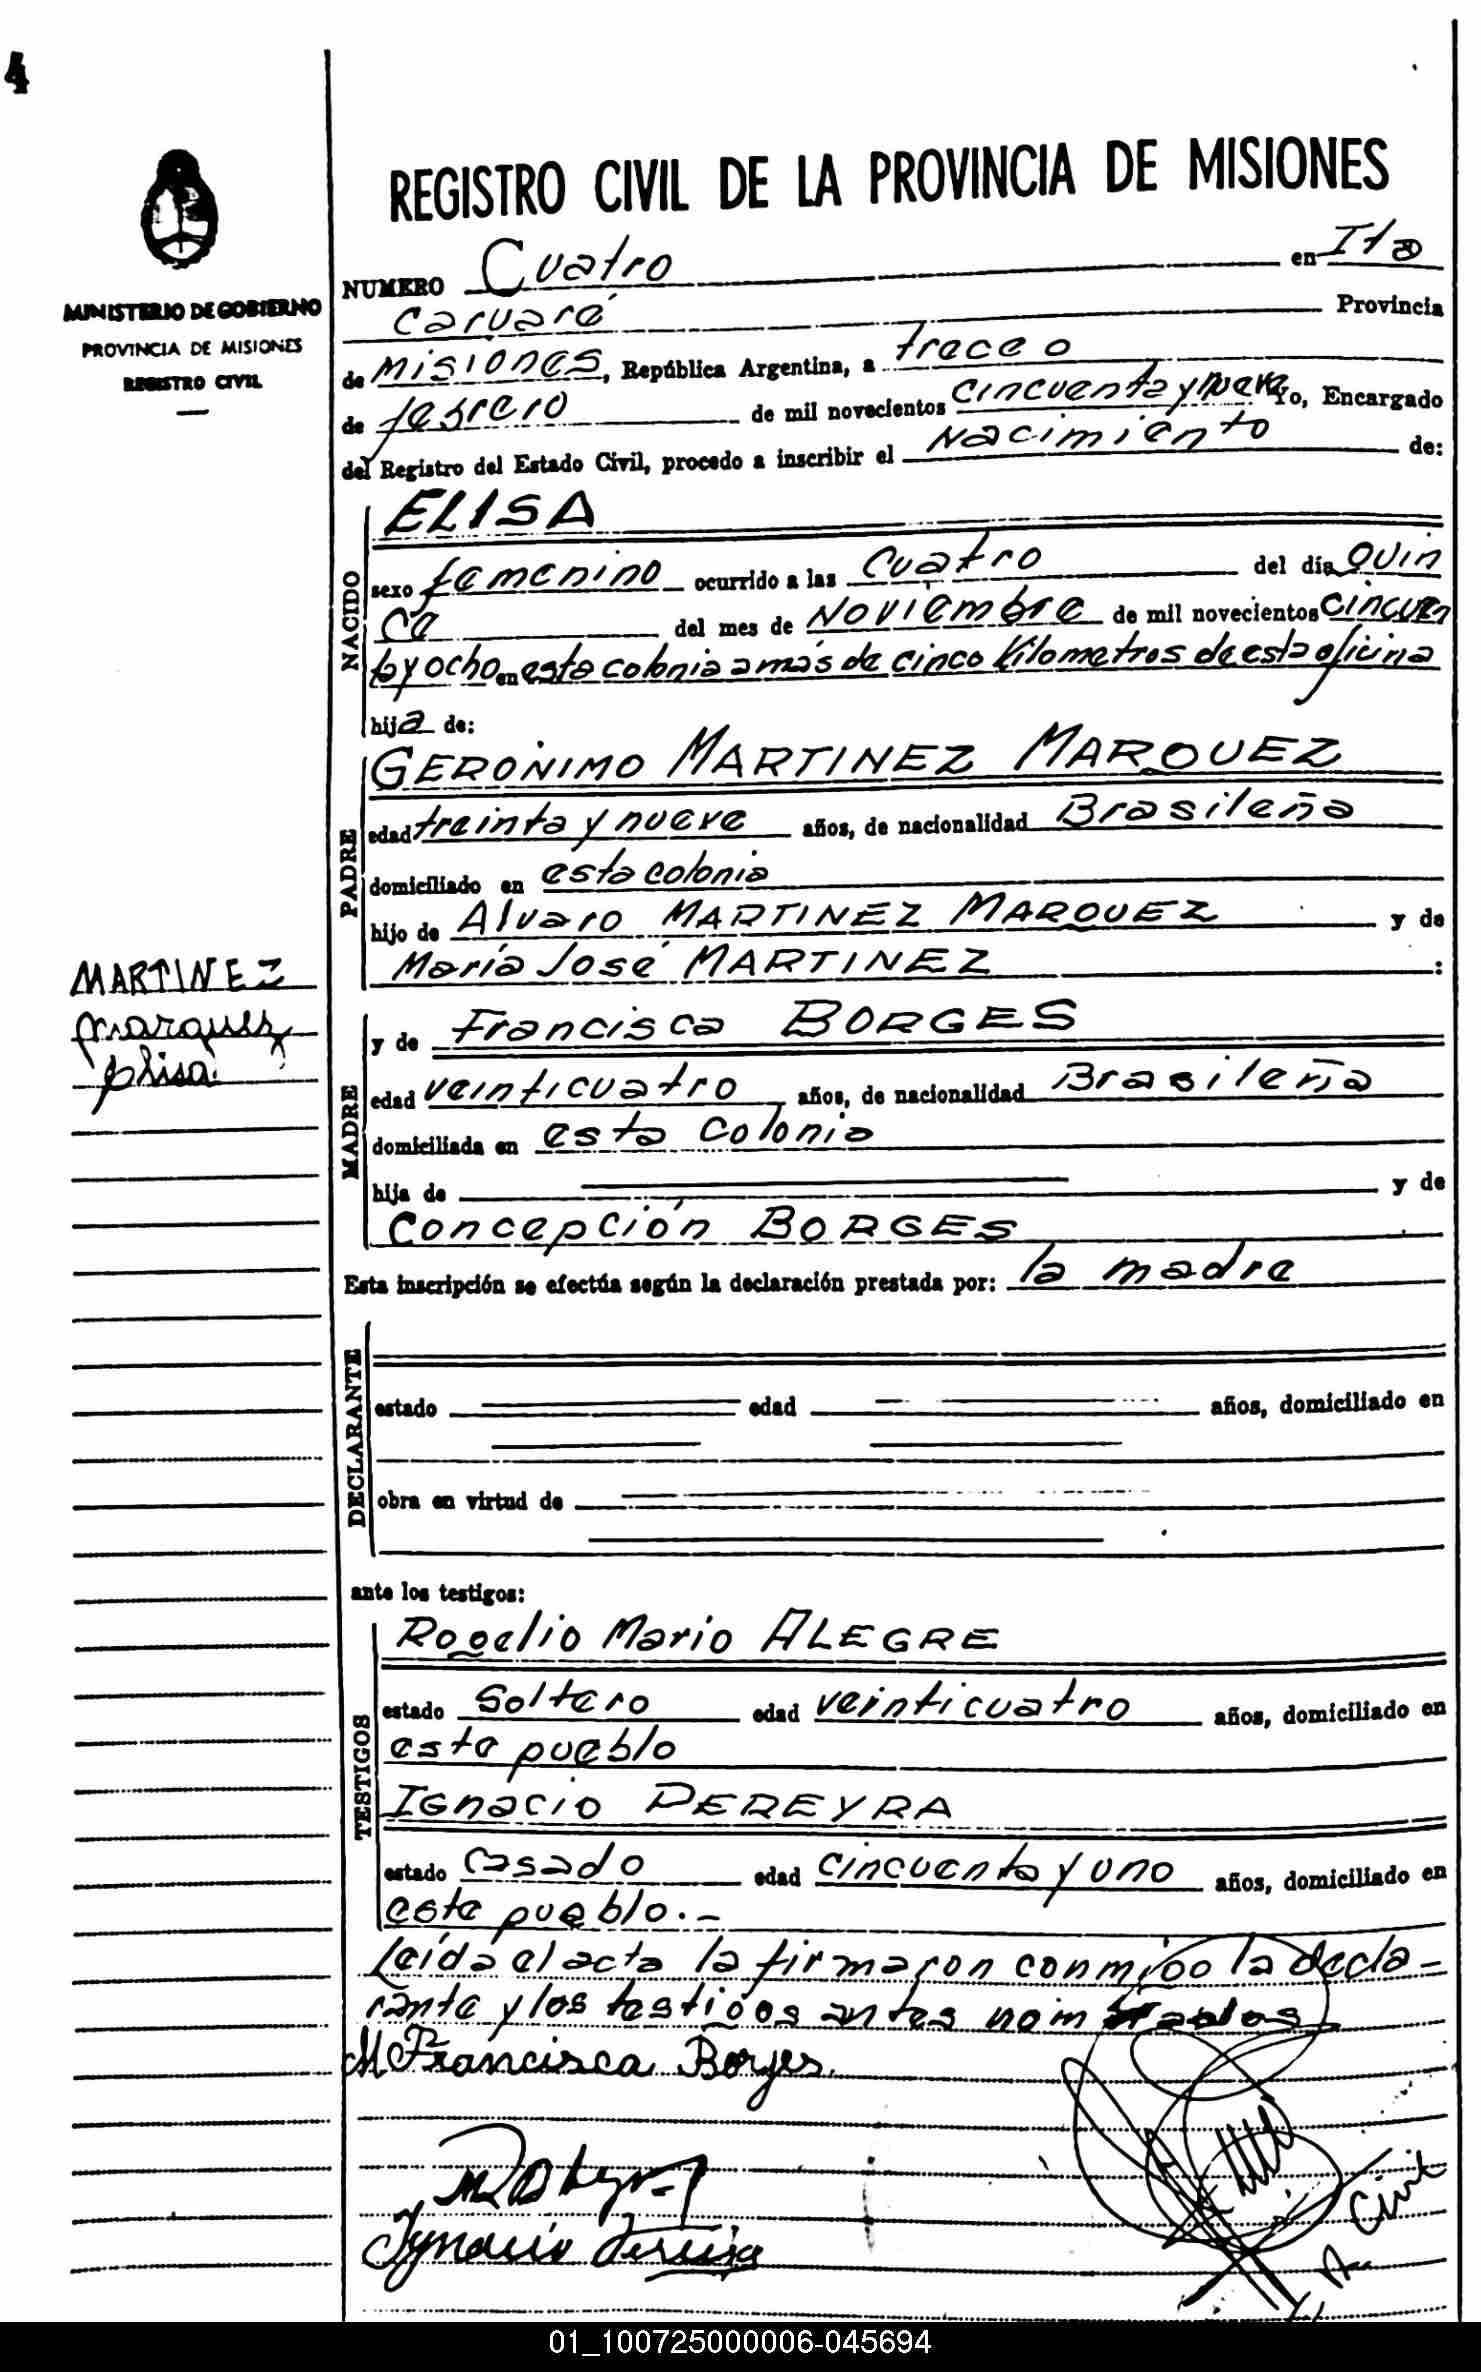 4
MINISTERIO DE GOBIERNO
PROVINCIA DE MISIONES
REGISTRO CIVIL
REGISTRO CIVIL DE LA PROVINCIA DE MISIONES
NUMERO Cuatro en Ita
Caruaré Provincia
de Misiones, República Argentina, a trece
de febrero de mil novecientos cincuenta y nueve Yo, Encargado
del Registro del Estado Civil, procedo a inscribir el Nacimiento de:
NACIDO
ELISA
sexo femenino ocurrido a las Cuatro del día Quin
ce del mes de Noviembre de mil novecientos Cincuen
ta y ocho en esta colonia a más de cinco Kilometros de esta oficina
hija de:
PADRE
GERÓNIMO MARTINEZ MARQUEZ
edad treinta y nueve años, de nacionalidad Brasileña
domiciliado en esta colonia
hijo de Alvaro MARTINEZ MARQUEZ y de
María José MARTINEZ :
MARTINEZ
Marquez
Elisa
MADRE
y de Francisca BORGES
edad veinticuatro años, de nacionalidad Brasileña
domiciliada en esta Colonia
hija de y de
Concepción BORGES
Esta inscripción se efectúa según la declaración prestada por: la madre
DECLARANTE
estado edad años, domiciliado en
obra en virtud de
ante los testigos:
TESTIGOS
Rogelio Mario ALEGRE
estado Soltero edad veinticuatro años, domiciliado en
este pueblo
Ignacio PEREYRA
estado casado edad cincuenta y uno años, domiciliado en
este pueblo.-
Leída el acta la firmaron conmigo la decla-
rante y los testigos antes nombrados
M Francisca Borges.
Ygnacio Pereira
Civil
01_100725000006-045694